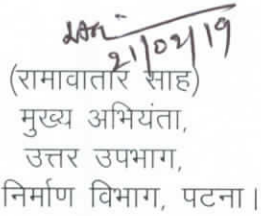 21/02/19
(रामावातार साह)
मुख्य अभियंता,
उत्तर उपभाग,
निर्माण विभाग, पटना।